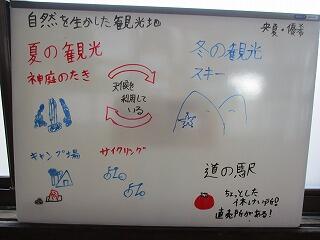 自然を生かした観光地
夏の観光
神庭のたき
天候を
利用して
いる
キャンプ場
サイクリング
冬の観光
スキー
道の駅
ちょっとした
休けい所
直売所がある!